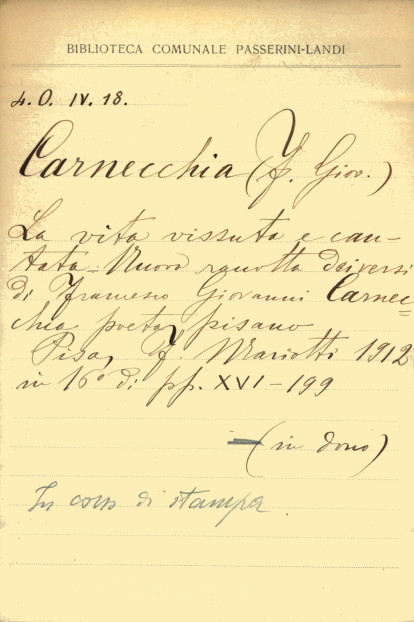 BIBLIOTECA COMUNALE PASSERINI-LANDI
4. O. IV. 18.
Carnecchia (F. Giov.)
La vita vissuta e can-
tata. Nuova raccolta dei versi
di Francesco Giovanni Carnec=
chia poeta pisano
Pisa, F. Mariotti 1912
in 16° di pp. XVI-199
(in dono)
In corso di stampa.